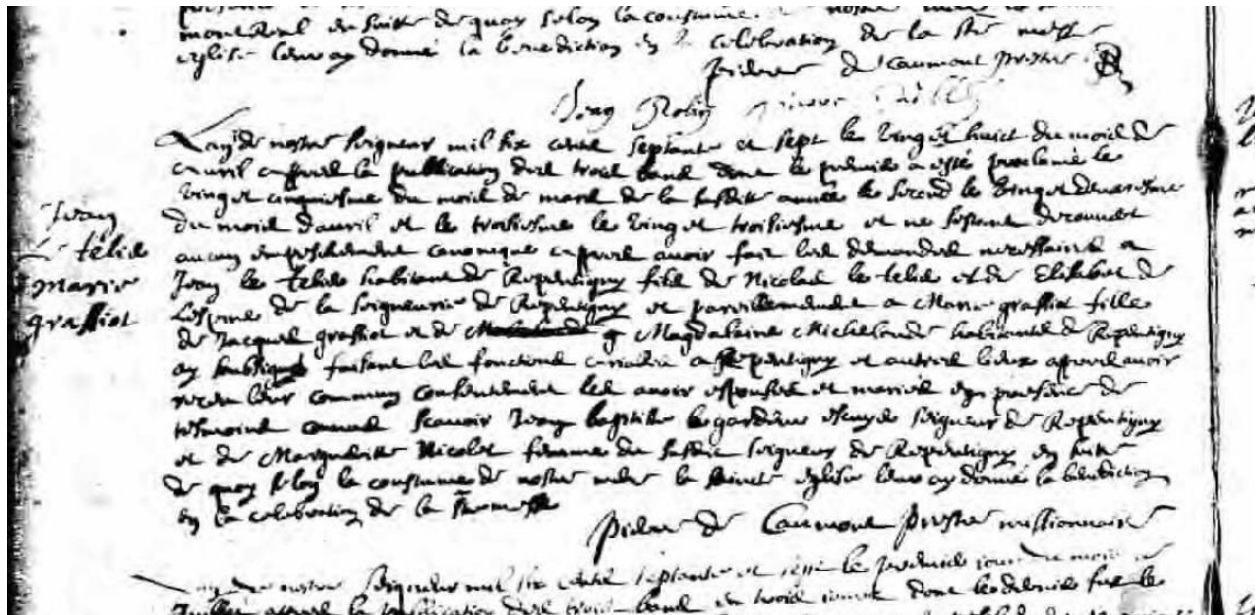 montreal en suitte de quoy selon la coustume de nostre mere la
eglise leur ay donné la benediction en la celebration de la Ste messe
de Caumont prestre
Jean Robin
Lan de nostre seigneur mil six cents septante et sept le vingt huict du mois de
avril appres la publication des trois bans dont le premier a esté proclamé le
vingt cinquiesme du mois de mars de la susditte année le second le vingt deuxiesme
du mois davril et le troisiesme le vingt troisiesme et ne sestant decouvert
aucun empeschement canonique appres avoir fait les demandes necessaires a
Jean le telié habitant de Repentigny fils de Nicolas le telié et de Elisabet de
Lespine de la seigneurie de Repentigny et pareillemement a Marie grassiot fille
de Jacques grassiot et de Magdalaine Michelande habitants de Repentigny
ay soubsigné faisant les fonctions curialles a Repentigny et autres lieux appres avoir
receu leur commun consentement les avoir espousés et mariés en presence de
tesmoins scavoir Jean baptiste legardeur escuyer seigneur de Repentigny
et de Marguerite Nicolet femme du susdit seigneur de Repentigny en suite
de quoy selon la coustume de nostre mere la saincte eglise leur ay donné la benediction
en la celebration de la Ste messe
de Caumont prestre missionnaire
Jean
Le télié
Marie
grassiot
Lan de nostre seigneur mil six cents septante et sept le premier jour du mois de
Juillet appres la publication des trois bans en trois jours dont le dernier fut le